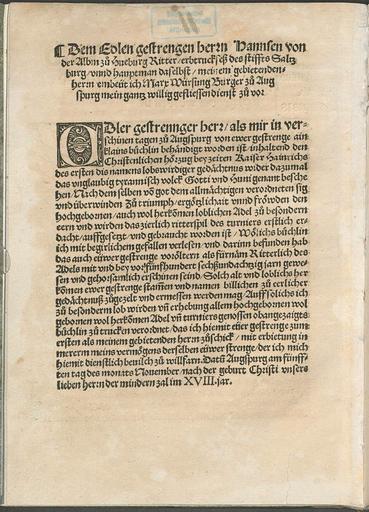 ¶ Dem Edlen gestrengen herrn Hannsen von
der Albm zů Hueburg Ritter / erbtruckseß des stiffts Saltz
burg / vnnd haupttman daselbst / meinem gebietenden
herrn embeüt ich Marx Würsung Burger zů Aug
spurg mein gantz willig geflissen dienst zů vor
EDler gestrennger herr / als mir in ver-
schinen tagen zů Augspurg von ewer gestrenge ain
klains büchlin behändigt worden ist / inhaltend den
Christenlichen hörzug bey zeiten Kaiser Hainrichs
des ersten dis namens lobswirdiger gedächtnus wider dazumal
das vnglaubig tyrannisch volck Gotti vnd Huni genant besche
hen / Nach dem selben võ got dem allmächtigen verordneten sig
vnd überwinden Zů triumph / ergötzlichait vnnd fröwden den
hochgebornen / auch wol herkomen loblichen Adel zů besondern
eern vnd wirden das zierlich ritterspil des turniers erstlich er-
dacht / auffgesetzt vnd gebraucht worden ist / Wölichs büchlin
ich mit begirlichem gefallen verlesen vnd darinn befunden hab
das auch ewrer gestrenge vorölltern als fürnäm Ritterlich des
Adels mit vnd bey vor fünffhundert sechßundachtzig jarn gewe-
sen vnd gehorsamlich erschinen seind Solch alt vnd loblichs her
kömen ewer gestrenge stam̃en vnd namen billichen zů erlicher
gedächtnuß zůgezelt vnd ermessen werden mag / Auff sölichs ich
zů besonderm lob wirden vñ erhebung allem hochgebornen wol
gebornen wol herkömen Adel vñ turniers genossen obangezaigts
büchlin zů trucken verordnet / das ich hiemit eüer gestrenge zum
ersten als meinem gebietenden herrn zůschick / mit erbietung in
mererm meins vermögens derselben eüwer strenge / der ich mich
hiemit dienstlich beuilch zů willfarn. Datũ Augspurg am fünff-
ten tag des monats Nouember / nach der geburt Christi vnsers
lieben herrn der mindern zal im XVIII. jar.